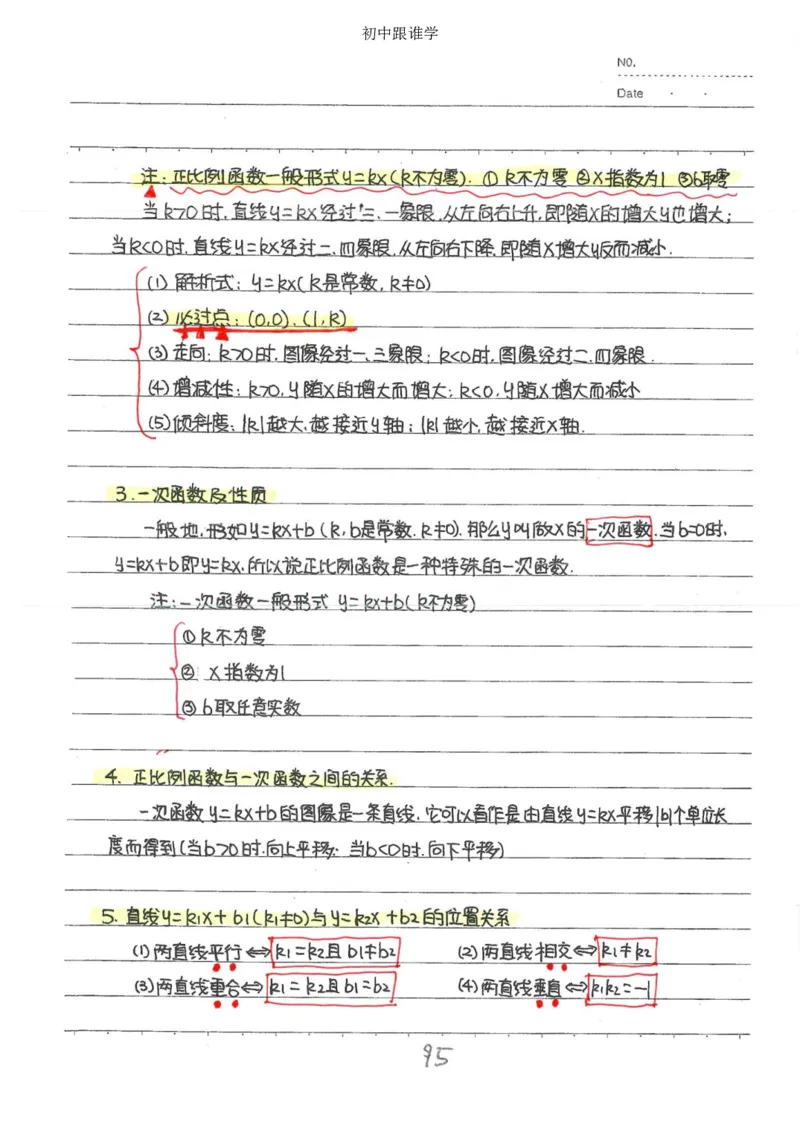 初中跟谁学
NO.
Date
注:正比例函数一般形式y=kx(k不为零). ① k不为零 ②x指数为1 ③b取零
当k>0时,直线y=kx经过三、一象限,从左向右上升,即随x的增大y也增大;
当k<0时,直线y=kx经过二、四象限,从左向右下降,即随x增大y反而减小.
(1) 解析式: y=kx(k是常数, k≠0)
(2) 必过点: (0,0). (1,k)
(3) 走向: k>0时,图像经过一、三象限; k<0时,图像经过二、四象限.
(4) 增减性: k>0, y随x的增大而增大; k<0, y随x增大而减小
(5) 倾斜度: |k|越大,越接近y轴; |k|越小,越接近x轴.
3.一次函数及性质
一般地,形如y=kx+b (k,b是常数, k≠0), 那么y叫做x的一次函数.当b=0时,
y=kx+b即y=kx,所以说正比例函数是一种特殊的一次函数.
注:一次函数一般形式 y=kx+b(k不为零)
① k不为零
② x指数为1
③ b取任意实数
4. 正比例函数与一次函数之间的关系.
一次函数y=kx+b的图像是一条直线,它可以看作是由直线y=kx平移|b|个单位长
度而得到(当b>0时,向上平移; 当b<0时,向下平移)
5. 直线y=k1x+b1(k1≠0)与y=k2x+b2的位置关系
(1)两直线平行⇔k1=k2且b1≠b2 (2)两直线相交⇔k1≠k2
(3)两直线重合⇔k1=k2且b1=b2 (4)两直线垂直⇔k1k2=-1
95